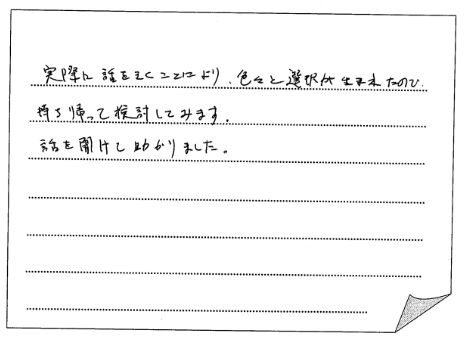 実際に話をきくことにより、色々と選択が生まれたので、
持ち帰って検討してみます。
話を聞けし助かりました。